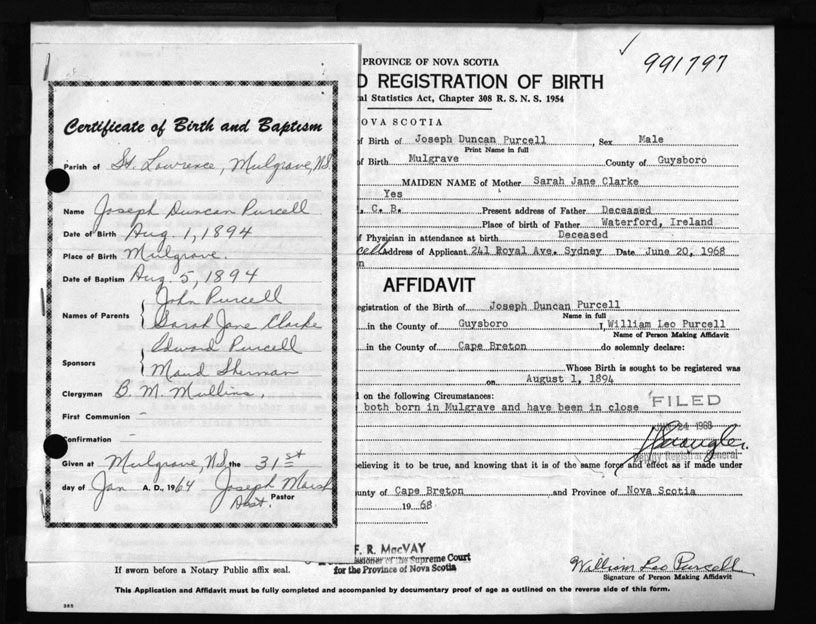 Certificate of Birth and Baptism
Parish of St. Lawrence, Mulgrave, N.S.
Name Joseph Duncan Purcell
Date of Birth Aug. 1, 1894
Place of Birth Mulgrave.
Date of Baptism Aug. 5, 1894
Names of Parents John Purcell
Sarah Jane Clarke
Sponsors Edward Purcell
Maud Sherman
Clergyman B. M. Mullins,
First Communion –
Confirmation –
Given at Mulgrave, N.S. the 31st
day of Jan A. D., 1964 Joseph Marsh
Pastor
Asst.
991797
PROVINCE OF NOVA SCOTIA
D REGISTRATION OF BIRTH
al Statistics Act, Chapter 308 R. S. N. S. 1954
OVA SCOTIA
of Birth of Joseph Duncan Purcell, Sex Male
Print Name in full
of Birth Mulgrave County of Guysboro
MAIDEN NAME of Mother Sarah Jane Clarke
Yes
. C. B. Present address of Father Deceased
Place of birth of Father Waterford, Ireland
f Physician in attendance at birth Deceased
cell Address of Applicant 241 Royal Ave. Sydney Date June 20, 1968
AFFIDAVIT
egistration of the Birth of Joseph Duncan Purcell
Name in full
in the County of Guysboro I, William Leo Purcell
Name of Person Making Affidavit
in the County of Cape Breton do solemnly declare:
Whose Birth is sought to be registered was
on August 1, 1894
on the following Circumstances:
both born in Mulgrave and have been in close
FILED
24 1968
Deputy Registrar General
believing it to be true, and knowing that it is of the same force and effect as if made under
unty of Cape Breton and Province of Nova Scotia
1968
F. R. MacVAY
issioner of the Supreme Court
for the Province of Nova Scotia
If sworn before a Notary Public affix seal.
William Leo Purcell
Signature of Person Making Affidavit
This Application and Affidavit must be fully completed and accompanied by documentary proof of age as outlined on the reverse side of this form.